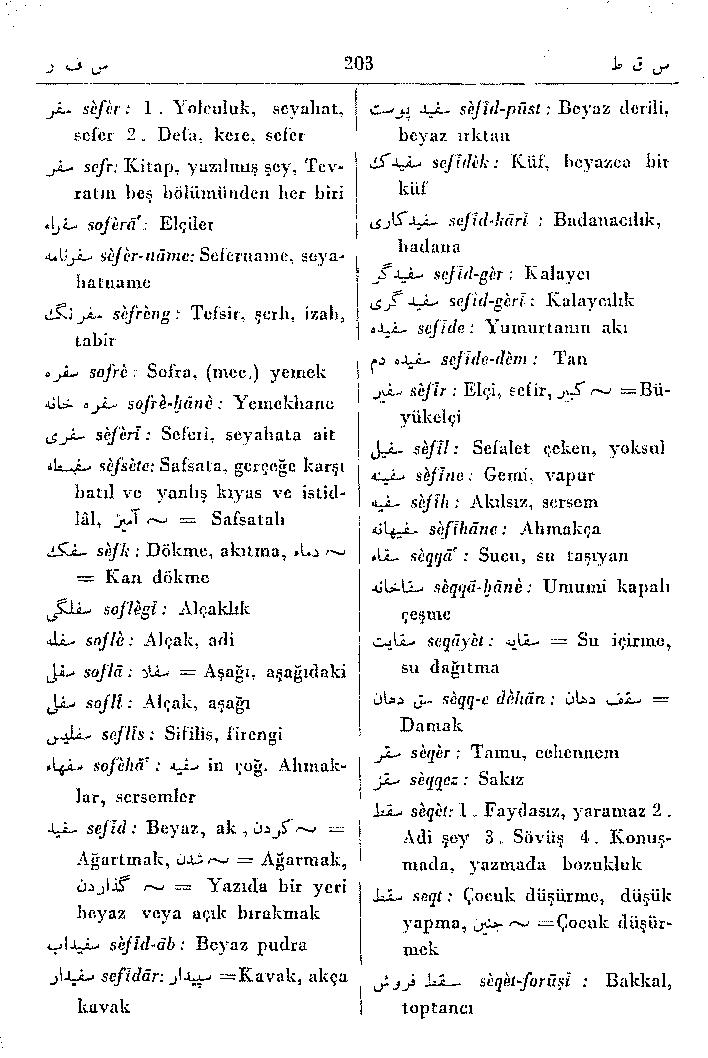 س ف ر 203 س ق ط
سفر sèfèr: 1 . Yolculuk, seyahat,
sefer 2 . Defa, kere, sefer
سفر sefr: Kitap, yazılmış şey, Tev-
ratın beş bölümünden her biri
سفراء soferā': Elçiler
سفرنامه sèfèr-nāme: Sefername, seya-
hatname
سفرنگ sèfrèng: Tefsir, şerh, izah,
tabir
سفره sofrè: Sofra, (mec.) yemek
سفره خانه sofrè-ḫānè: Yemekhane
سفری sèfèrī: Seferi, seyahata ait
سفسطه sèfsète: Safsata, gerçeğe karşı
batıl ve yanlış kıyas ve istid-
lâl, آمیز ~ = Safsatalı
سفک sèfk: Dökme, akıtma, دماء ~
= Kan dökme
سفلگی soflègī: Alçaklık
سفله soflè: Alçak, adi
سفلی soflā: سفلا = Aşağı, aşağıdaki
سفلی soflī: Alçak, aşağı
سفلیس seflīs: Sifilis, firengi
سفهاء sofèhā': سفیه in çoğ. Ahmak-
lar, sersemler
سفید sefīd: Beyaz, ak, کردن ~ =
Ağartmak, شدن ~ = Ağarmak,
گذاردن ~ = Yazıda bir yeri
beyaz veya açık bırakmak
سفیداب sèfīd-āb: Beyaz pudra
سفیدار sefīdār: سپیدار = Kavak, akça
kavak
سفید پوست sèfīd-pūst: Beyaz derili,
beyaz ırktan
سفیدک sefīdèk: Küf, beyazca bir
küf
سفیدکاری sefīd-kārī : Badanacılık,
badana
سفیدگر sefīd-gèr: Kalaycı
سفید گری sefīd-gèrī: Kalaycılık
سفیده sefīde: Yumurtanın akı
سفیده دم sefīde-dèm: Tan
سفیر sèfīr: Elçi, sefir, کبیر ~ = Bü-
yükelçi
سفیل sèfīl: Sefalet çeken, yoksul
سفینه sèfīne: Gemi, vapur
سفیه sèfīh: Akılsız, sersem
سفیهانه sèfīhāne: Ahmakça
سقاء sèqqā': Sucu, su taşıyan
سقاخانه sèqqā-ḫānè: Umumi kapalı
çeşme
سقایت seqāyèt: سقایه = Su içirme,
su dağıtma
سق دهان sèqq-e dèhān: سقف دهان =
Damak
سقر sèqèr: Tamu, cehennem
سقز sèqqez: Sakız
سقط sèqèt: 1 . Faydasız, yaramaz 2 .
Adi şey 3 . Sövüş 4 . Konuş-
mada, yazmada bozukluk
سقط seqt: Çocuk düşürme, düşük
yapma, جنین ~ = Çocuk düşür-
mek
سقط فروش sèqèt-forūşī : Bakkal,
toptancı